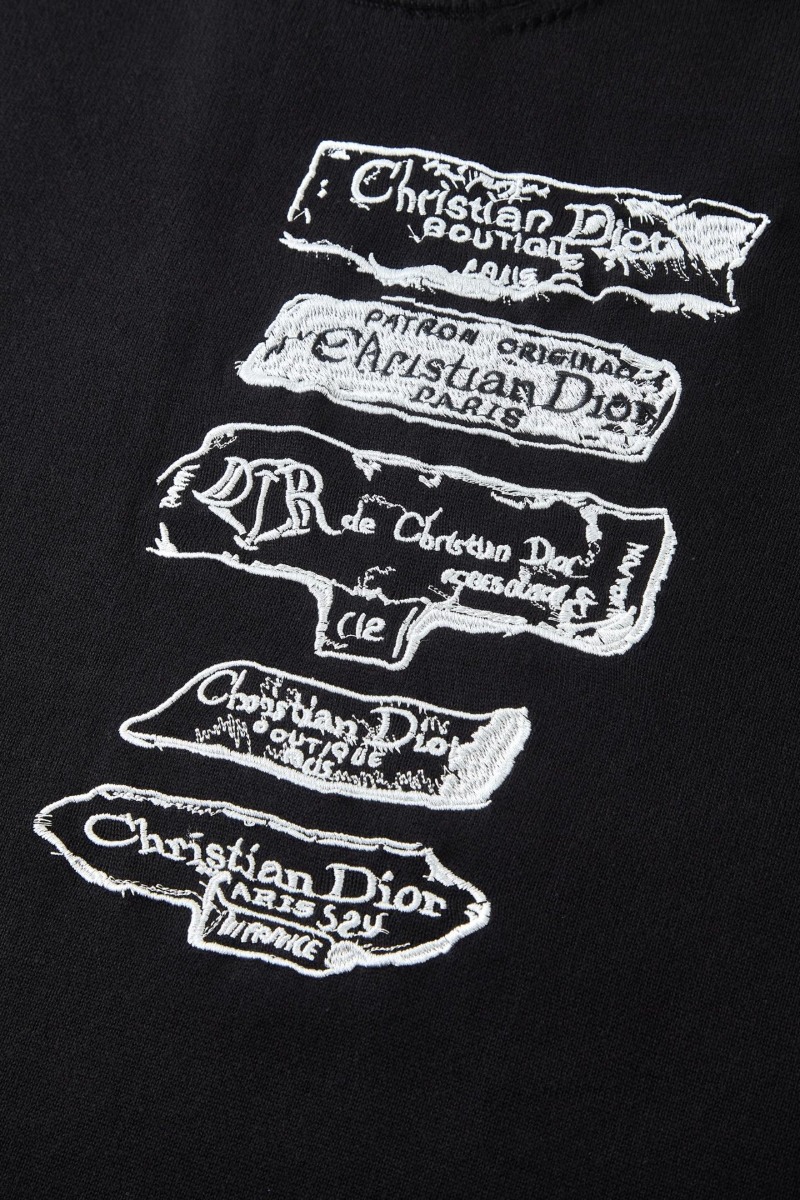 Christian Dior
BOUTIQUE
PARIS
PATRON ORIGINAL
Christian Dior
PARIS
de Christian Dior
C12
Christian Dior
BOUTIQUE
PARIS
Christian Dior
PARIS S24